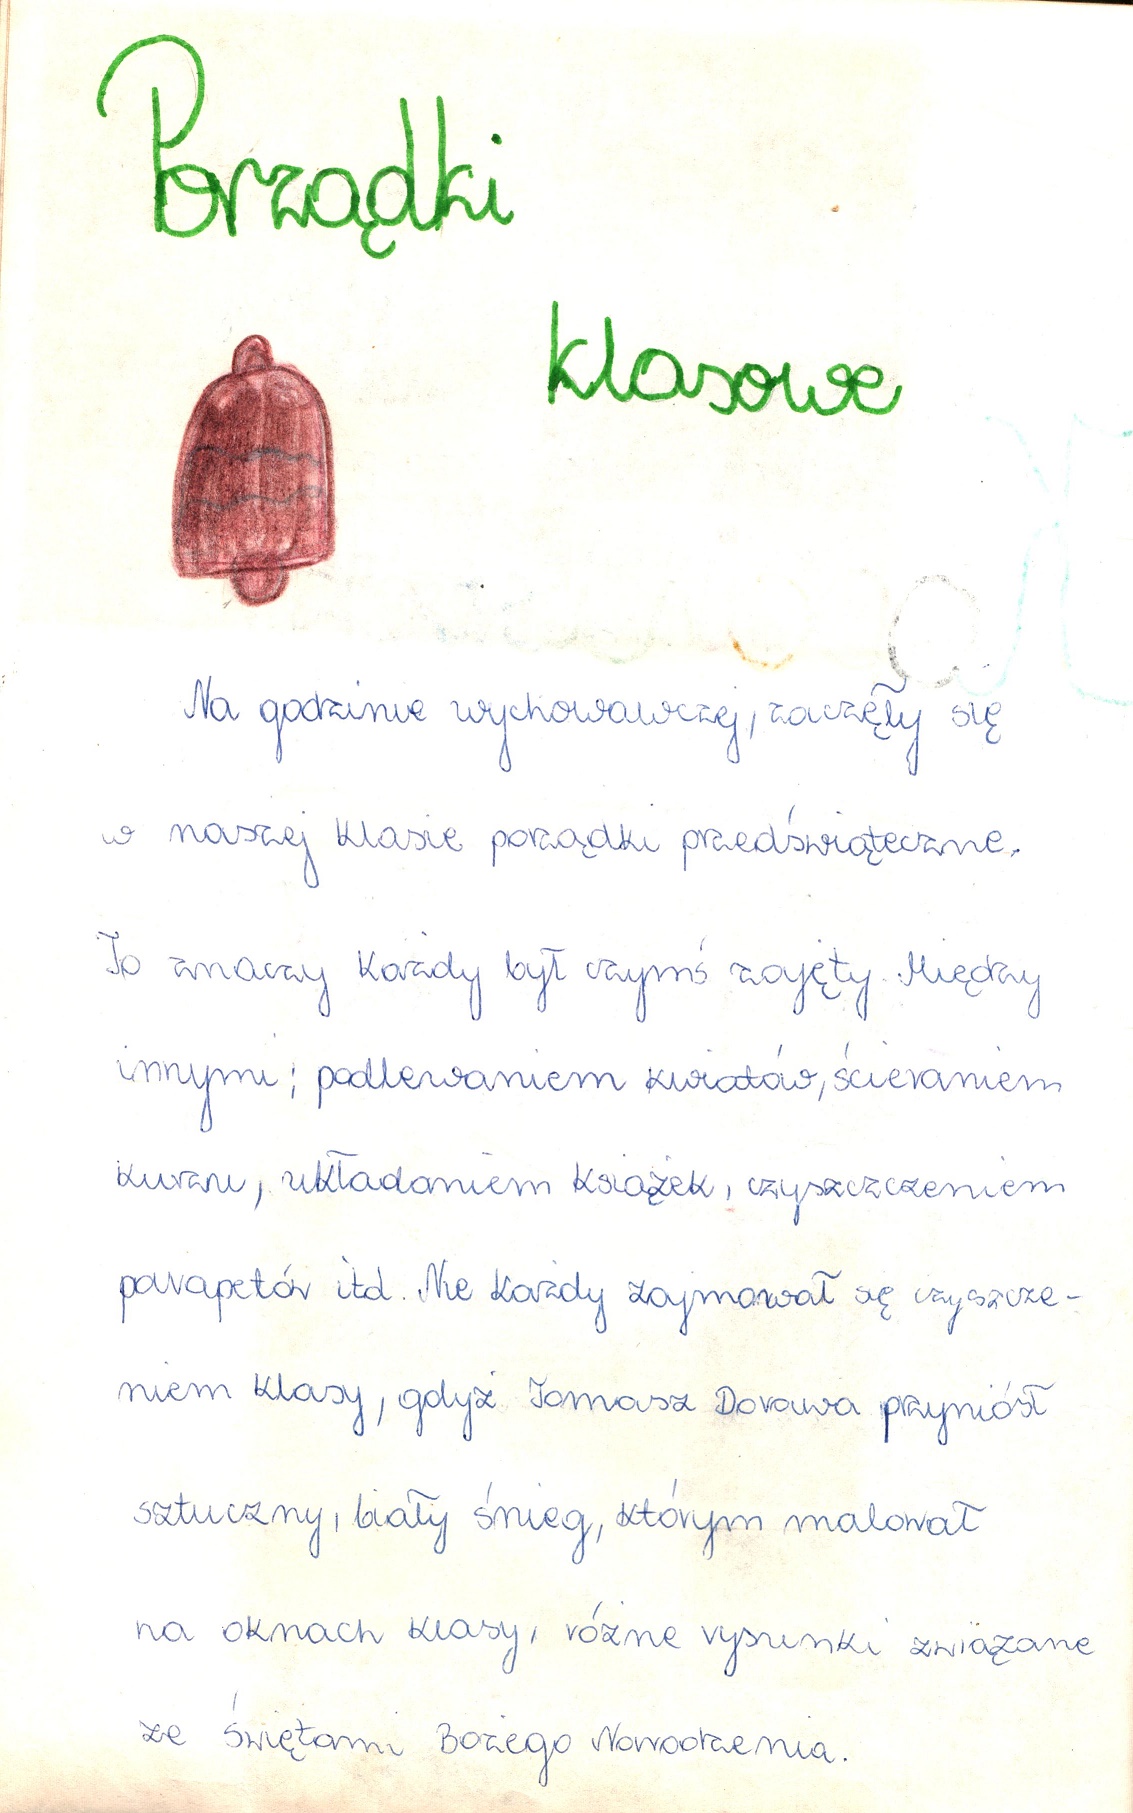 Porządki
klasowe
Na godzinie wychowawczej, zaczęły się
w naszej klasie porządki przedświąteczne.
To znaczy każdy był czymś zajęty. Między
innymi; podlewaniem kwiatów, ścieraniem
kurzu, układaniem książek, czyszczczeniem
parapetów itd. Nie każdy zajmował się czyszcze-
niem klasy, gdyż Tomasz Dorawa przyniósł
sztuczny, biały śnieg, którym malował
na oknach klasy, różne rysunki związane
ze świętami Bożego Narodzenia.